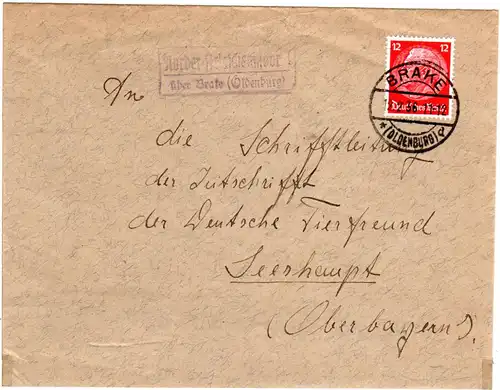 über Brake (Oldenburg)
12 12
Deutsches Reich
BRAKE
* (OLDENBURG) d
An
die Schriftleitung
der Zeitschrift
der Deutsche Tierfreund
Seeshaupt
(Oberbayern).